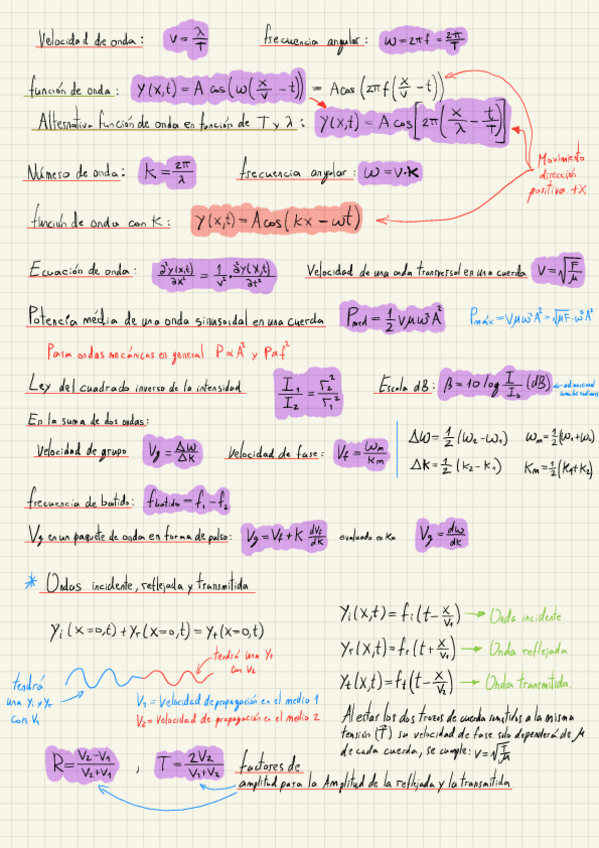 Velocidad de onda: v = λ/T    frecuencia angular: ω = 2πf = 2π/T
función de onda: y(x,t) = A cos(ω(x/v - t)) = A cos(2πf(x/v - t))
Alternativa función de onda en función de T y λ: y(x,t) = A cos[2π(x/λ - t/T)]
Movimiento
dirección
positiva +x
Número de onda: K = 2π/λ    frecuencia angular: ω = v·K
función de onda con K: y(x,t) = A cos(kx - ωt)
Ecuación de onda: ∂²y(x,t)/∂x² = 1/v² · ∂²y(x,t)/∂t²    Velocidad de una onda tranversal en una cuerda v = √(F/μ)
Potencia média de una onda sinusoidal en una cuerda Pmed = 1/2 vμω²A²    Pmáx = vμω²A² = √μF · ω²A²
Para ondas mecánicas en general P∝A² y P∝f²
Ley del cuadrado inverso de la intensidad I₁/I₂ = r₂²/r₁²    Escala dB: β = 10 log I/I₀ (dB)
En la suma de dos ondas:
velocidad de grupo Vg = Δω/ΔK    velocidad de fase: Vf = ωm/Km
Δω = 1/2 (ω₂-ω₁)    ωm = 1/2(ω₁+ω₂)
ΔK = 1/2 (k₂-k₁)    Km = 1/2(K₁+K₂)
frecuencia de batido: fbatido = f₁ - f₂
Vg en un paquete de onda en forma de pulso: Vg = Vf + K dVf/dK evaluado en Km    Vg = dω/dK
* Ondas incidente, reflejada y transmitida
yi(x=0,t) + yr(x=0,t) = yt(x=0,t)
yi(x,t) = fi(t - x/v₁) → Onda incidente
yr(x,t) = fr(t + x/v₁) → Onda reflejada
yt(x,t) = ft(t - x/v₂) → Onda transmitida.
tendrá una yt
con v₂
tendrá
una yi y yr
con v₁
V₁ = Velocidad de propagación en el medio 1
V₂ = Velocidad de propagación en el medio 2
Al estar los dos trozos de cuerda sometidos a la misma
tensión (T) su velocidad de fase solo dependerá de μ
de cada cuerda, se cumple: v = √(T/μ)
R = V₂-V₁/V₂+V₁ , T = 2V₂/V₁+V₂ factores de
amplitud para la Amplitud de la reflejada y la transmitida